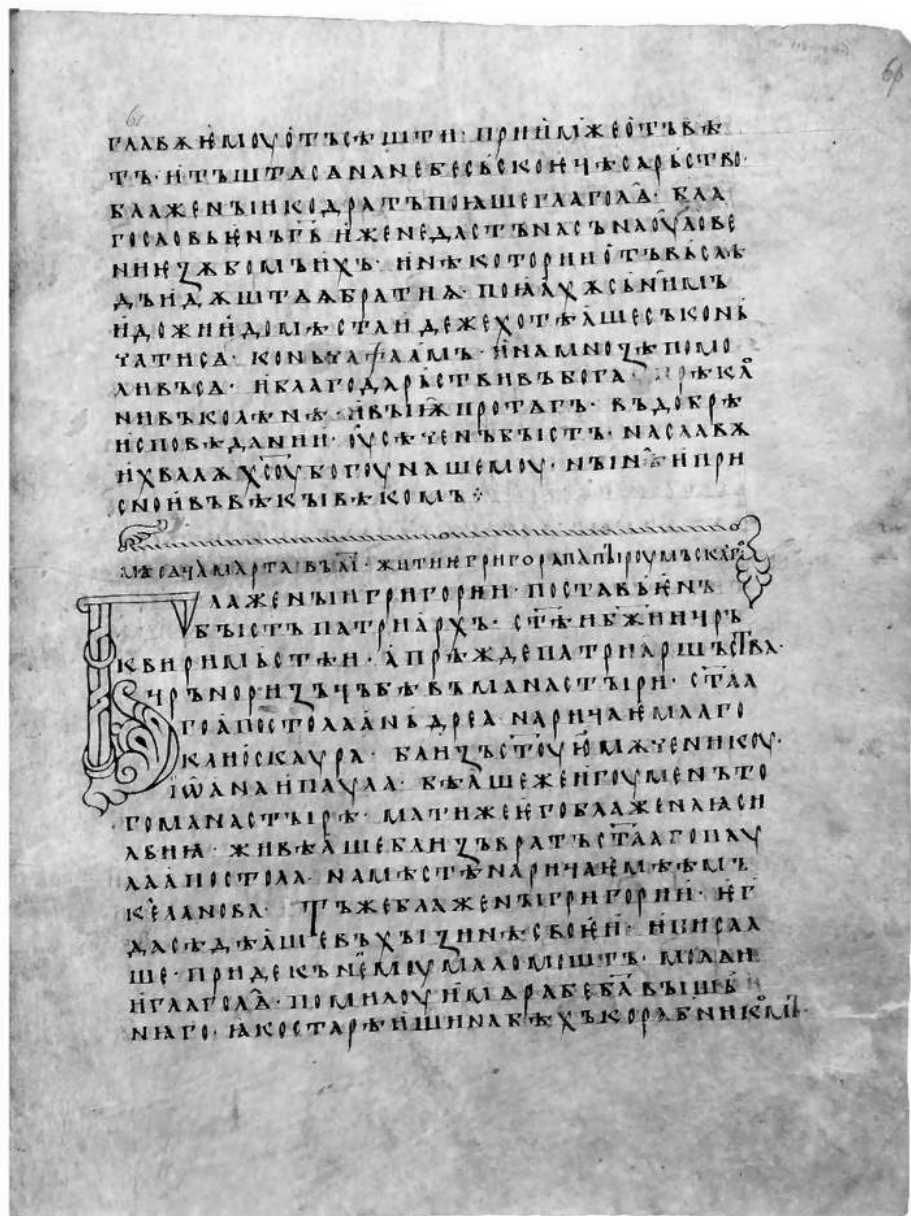 главѫ ѥмоу отъсѣшти· приимѫ же отъвѣ
тъ· и тъштѧ сѧ на небесьскоѥ цѣсарьство·
блаженыи кодратъ пояше глаголѧ· бла
гословьѥнъ г҃ь иже не дастъ насъ на оуловѥ
ниѥ ѫбомъ ихъ· и нѣкотории отъ вьслѣ
дъ идѫштаа братиѩ· поꙗахѫ съ нимь
идожи и до мѣста идеже хотѣаше съконь
чати сѧ· коньча ѱаамъ· и на мноѕѣ помо
ливъ сѧ· и благодарьствивъ бога прѣкло
нивъ колѣнѣ· и выѭ протѧгъ· въ добрѣ
исповѣдании· оусѣченъ быстъ· на славѫ
и хвалѫ х҃соу богоу нашемоу· нынѣ и при
сно и въ вѣкы вѣкомъ ⁘
мѣсѧца марта въ ві· житиѥ григора папы роумьскаго
Блаженыи григории· поставьѥнъ
быстъ патриархъ· ст҃ѣи б҃жии цръ
кви римьстѣи· а прѣжде патриаршьства·
чръноризьць бѣ въ манастыри· ст҃аа
го апостола аньдреа· наричаѥмааго
клиоскаура· близъ ст҃оую мѫченикоу·
іѡана и паула· бѣаше же игоуменъ то
го манастырѣ· мати же ѥго блаженаꙗ си
львиꙗ· живѣаше близъ вратъ ст҃ааго пау
ла апостола· на мѣстѣ наричаѥмѣѣмь
келанова· Тъ же блаженыи григории· ѥг
да сѣдѣаше въ хызинѣ своѥи· и писаа
ше· приде къ нѥмоу маломошть· молѧ и
и глаголѧ· помилоуи мѧ рабе б҃а вышь
нꙗго· ꙗко старѣишина бѣхъ корабникомъ·